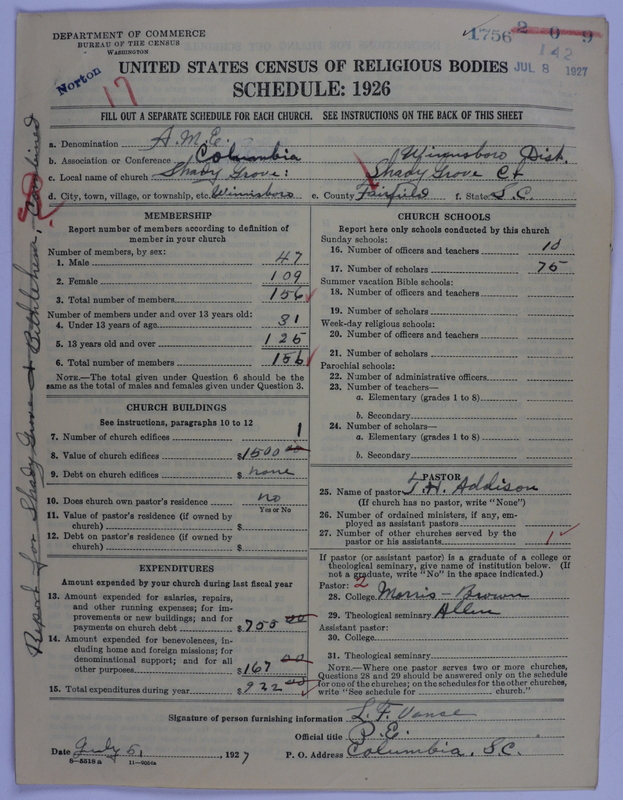 DEPARTMENT OF COMMERCE
BUREAU OF THE CENSUS
WASHINGTON
1756 209
142
JUL 8 1927
Norton
17
UNITED STATES CENSUS OF RELIGIOUS BODIES
SCHEDULE: 1926
FILL OUT A SEPARATE SCHEDULE FOR EACH CHURCH. SEE INSTRUCTIONS ON THE BACK OF THIS SHEET
a. Denomination A.M.E.
b. Association or Conference Columbia Winnsboro Dist.
c. Local name of church Shady Grove: Shady Grove Ct
d. City, town, village, or township, etc. Winnsboro e. County Fairfield f. State S.C.
Report for Shady Grove & Bethlehem, Combined
MEMBERSHIP
Report number of members according to definition of
member in your church
Number of members, by sex:
1. Male 47
2. Female 109
3. Total number of members 156
Number of members under and over 13 years old:
4. Under 13 years of age 31
5. 13 years old and over 125
6. Total number of members 156
NOTE.—The total given under Question 6 should be the
same as the total of males and females given under Question 3.
CHURCH BUILDINGS
See instructions, paragraphs 10 to 12
7. Number of church edifices 1
8. Value of church edifices $1500 00
9. Debt on church edifices $ none
10. Does church own pastor's residence no
Yes or No
11. Value of pastor's residence (if owned by
church) $
12. Debt on pastor's residence (if owned by
church) $
EXPENDITURES
Amount expended by your church during last fiscal year
13. Amount expended for salaries, repairs,
and other running expenses; for im-
provements or new buildings; and for
payments on church debt $755 00
14. Amount expended for benevolences, in-
cluding home and foreign missions; for
denominational support; and for all
other purposes $167 00
15. Total expenditures during year $932 00
CHURCH SCHOOLS
Report here only schools conducted by this church
Sunday schools:
16. Number of officers and teachers 10
17. Number of scholars 75
Summer vacation Bible schools:
18. Number of officers and teachers
19. Number of scholars
Week-day religious schools:
20. Number of officers and teachers
21. Number of scholars
Parochial schools:
22. Number of administrative officers
23. Number of teachers—
a. Elementary (grades 1 to 8)
b. Secondary
24. Number of scholars—
a. Elementary (grades 1 to 8)
b. Secondary
PASTOR
25. Name of pastor T.H. Addison
(If church has no pastor, write "None")
26. Number of ordained ministers, if any, em-
ployed as assistant pastors
27. Number of other churches served by the
pastor or his assistants 1
If pastor (or assistant pastor) is a graduate of a college or
theological seminary, give name of institution below. (If
not a graduate, write "No" in the space indicated.)
Pastor: 2
28. College Morris-Brown
29. Theological seminary Allen
Assistant pastor:
30. College
31. Theological seminary
NOTE.—Where one pastor serves two or more churches,
Questions 28 and 29 should be answered only on the schedule
for one of the churches; on the schedules for the other churches,
write "See schedule for church."
Signature of person furnishing information L.F. Vance
Official title P.E.
Date July 5, 1927 P. O. Address Columbia, S.C.
8—5518 a 11—9054a